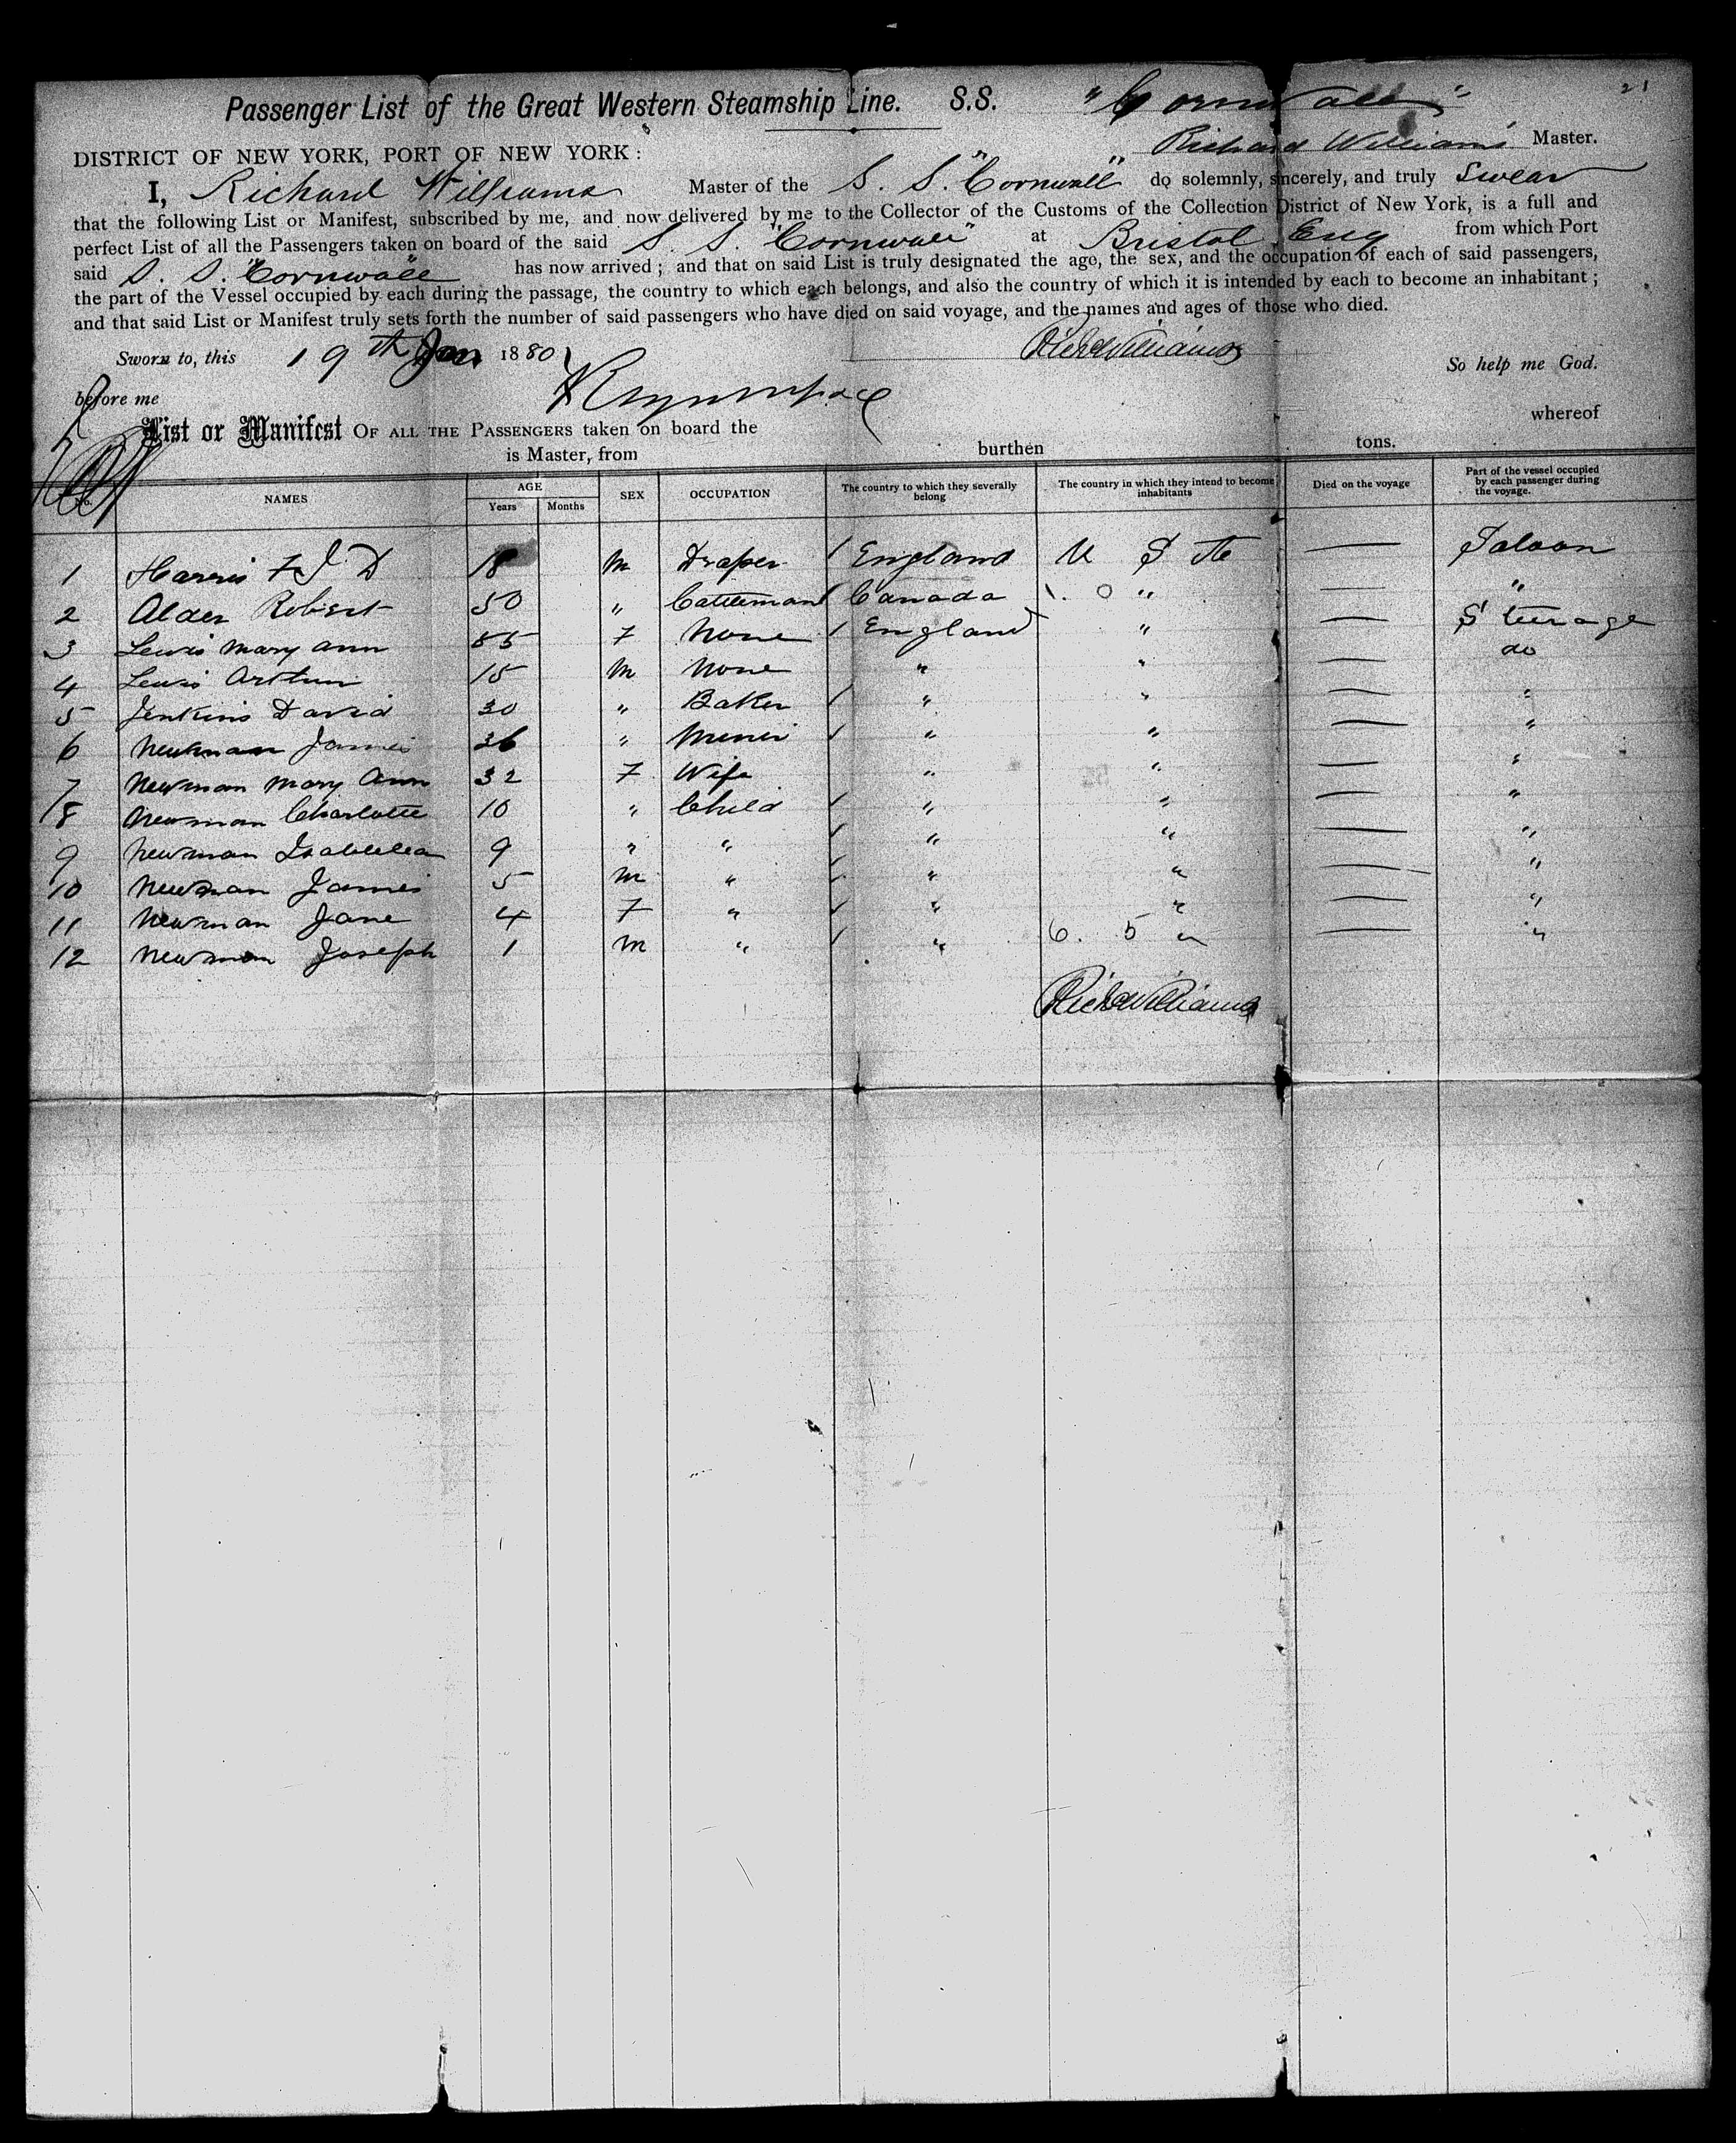 21
Passenger List of the Great Western Steamship Line. S.S. "Cornwall"
DISTRICT OF NEW YORK, PORT OF NEW YORK: Richard Williams Master.
I, Richard Williams Master of the S. S. "Cornwall" do solemnly, sincerely, and truly Swear
that the following List or Manifest, subscribed by me, and now delivered by me to the Collector of the Customs of the Collection District of New York, is a full and
perfect List of all the Passengers taken on board of the said S. S. "Cornwall" at Bristol Eng from which Port
said S. S. "Cornwall" has now arrived; and that on said List is truly designated the age, the sex, and the occupation of each of said passengers,
the part of the Vessel occupied by each during the passage, the country to which each belongs, and also the country of which it is intended by each to become an inhabitant;
and that said List or Manifest truly sets forth the number of said passengers who have died on said voyage, and the names and ages of those who died.
Sworn to, this 19th Jan 1880 Richd Williams So help me God.
before me
List or Manifest OF ALL THE PASSENGERS taken on board the whereof
is Master, from burthen tons.
No. NAMES AGE Years Months SEX OCCUPATION The country to which they severally belong The country in which they intend to become inhabitants Died on the voyage Part of the vessel occupied by each passenger during the voyage.
1 Harris F J D 18 m Draper / England U S A — Saloon
2 Alder Robert 50 " Cattleman / Canada 1. 0 " — "
3 Lewis Mary Ann 55 F None / England " — Steerage
4 Lewis Arthur 15 m None " " — do
5 Jenkins David 30 " Baker / " " — "
6 Newman James 36 " Miner / " " — "
7 Newman Mary Ann 32 F Wife " " — "
8 Newman Charlotte 10 " Child / " " — "
9 Newman Isabellea 9 " " / " " — "
10 Newman James 5 m " / " " — "
11 Newman Jane 4 F " / " " — "
12 Newman Joseph 1 m " / " 6. 5 " — "
Richd Williams